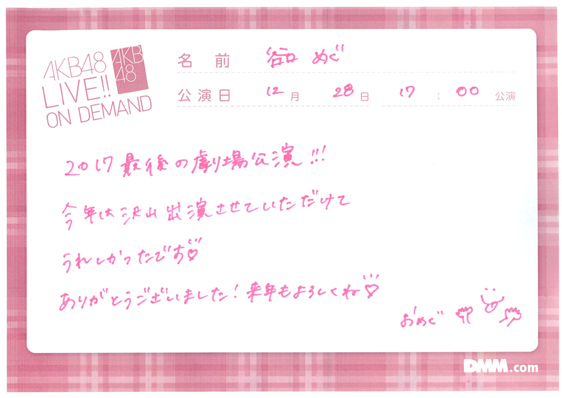 AKB48
LIVE!!
ON DEMAND
AKB
48
名前 谷口 めぐ
公演日 12月 28日 17:00 公演
2017 最後の劇場公演!!!
今年は沢山出演させていただけて
うれしかったです♡
ありがとうございました!来年もよろしくね♡
おめぐ
DMM.com